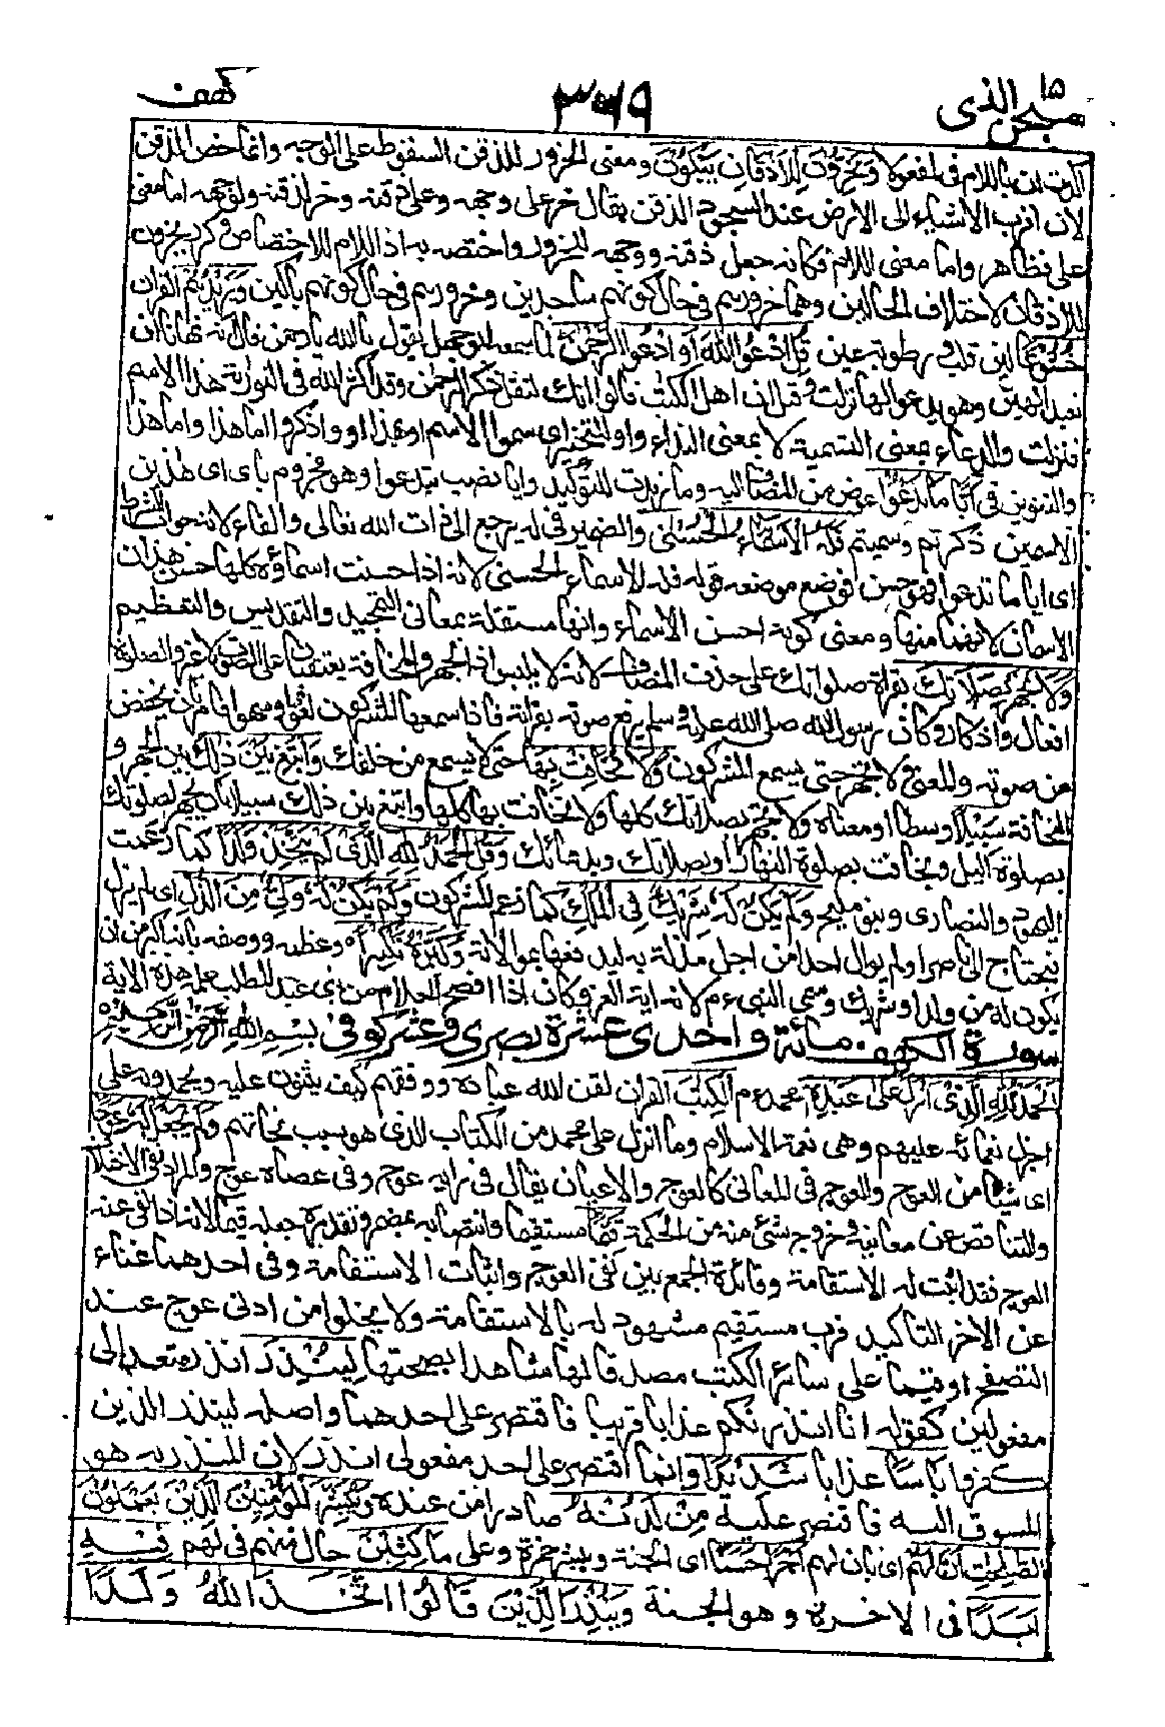 سبحن الذى ١٥
٣٦٩
كهف
باللام فى المفعول ويخرون للاذقان يبكون ومعنى الخرور للذقن السقوط على الوجه وانما خص الذقن
لان اقرب الاشياء الى الارض عند السجود الذقن يقال خر على وجهه وعلى ذقنه وخر لذقنه ولوجهه اما معنى
على فظاهر واما معنى اللام فكانه جعل ذقنه ووجهه للخرور واختصه به اذ اللام للاختصاص وكرر يخرون
للاذقان لاختلاف الحالين وهما خرورهم فى حال كونهم ساجدين وخرورهم فى حال كونهم باكين ويزيدهم القران
خشوعا لين قلب ورطوبة عين قل ادعوا الله او ادعوا الرحمن لما سمعه ابو جهل يقول يا الله يا رحمن قال انه نهانا ان
نعبد الهين وهو يدعو الها نزلت وقيل ان اهل الكتب قالوا انك لتقل ذكر الرحمن وقد اكثر الله فى التورية هذا الاسم
فنزلت والدعاء بمعنى التسمية لا بمعنى النداء واو للتخيير اى سموا الاسم او بهذا او واذكروا اما هذا واما هذا
والتنوين فى ايا ما تدعوا عوض من المضاف اليه وما زيدت للتوكيد وايا نصب بتدعوا وهو مجزوم باى اى هذين
الاسمين ذكرتم وسميتم فله الاسماء الحسنى والضمير فى له يرجع الى ذات الله تعالى والفاء لانه جواب الشرط
اى ايا ما تدعوا فهو حسن فوضع موضعه قوله فله الاسماء الحسنى لانه اذا حسنت اسماؤه كلها حسن هذان
الاسمان لانهما منها ومعنى كونه احسن الاسماء وانها مستقلة بمعانى التمجيد والتقديس والتعظيم
ولا تجهر بصلاتك بقراءة صلوتك على حذف المضاف لانه لا يلبس اذ الجهر والمخافة يعتقبان على الصوت لا غير والصلوة
افعال واذكار وكان رسول الله صلى الله عليه وسلم يرفع صوته بقراءته فاذا سمعها المشركون لغوا وسبوا فامر ان يخفض
من صوته والمعنى لا تجهر حتى يسمع المشركون ولا تخافت بها حتى لا يسمع من خلفك وابتغ بين ذلك بين الجهر و
المخافة سبيلا وسطا او معناه ولا تجهر بصلاتك كلها ولا تخافت بها كلها وابتغ بين ذلك سبيلا بان تجهر بصلوتك
بصلوة الليل وتخافت بصلوة النهار او بصلاتك وبدعائك وقل الحمد لله الذى لم يتخذ ولدا كما زعمت
اليهود والنصارى وبنو مليح ولم يكن له شريك فى الملك كما زعم المشركون ولم يكن له ولى من الذل اى لم يذل
فيحتاج الى ناصر او لم يوال احدا من اجل مذلة به ليدفعها بموالاته وكبره تكبيرا وعظمه ووصفه بانه اكبر من ان
يكون له من ولد او شريك وسمى النبى ءم لانه اية العز وكان اذا افصح الغلام من بنى عبد المطلب علمه هذه الاية
سورة الكهف مائة واحدى عشرة بصرى وعشر كوفى بسم الله الرحمن الرحيم
الحمد لله الذى انزل على عبده محمد ءم الكتب القران لقن الله عباده ووفقهم كيف يثنون عليه ويحمدونه على
اجزل نعمائه عليهم وهى نعمة الاسلام وما انزل على محمد من الكتاب الذى هو سبب نجاتهم ولم يجعل له عوجا
اى شيئا من العوج والعوج فى المعانى كالعوج والاعيان يقال فى رايه عوج وفى عصاه عوج والمراد نفى الاختلاف
والتناقض عن معانيه وخروج شئ منه من الحكمة قيما مستقيما وانتصابه بمضمر وتقديره جعله قيما لانه اذا نفى عنه
العوج فقد اثبت له الاستقامة وفائدة الجمع بين نفى العوج واثبات الاستقامة وفى احدهما غناء
عن الاخر التاكيد فرب مستقيم مشهود له بالاستقامة ولا يخلوا من ادنى عوج عند
التصفح او قيما على سائر الكتب مصدقا لها مشاهدا بصحتها لينذر انذر متعد الى
مفعولين كقوله انا انذرنكم عذابا قريبا فاقتصر على احدهما واصله لينذر الذين
كفروا باسا عذابا شديدا وانما اقتصر على احد مفعولى انذر لان المنذر به هو
المسوق اليه فاقتصر عليه من لدنه صادرا من عنده ويبشر المؤمنين الذين يعملون
الصلحت ان لهم اى بان لهم اجرا حسنا اى الجنة ويبشر حمزة وعلى ماكثين حال من هم فى لهم فيه
ابدا فى الاخرة وهو الجنة وينذر الذين قالوا اتخذ الله ولدا